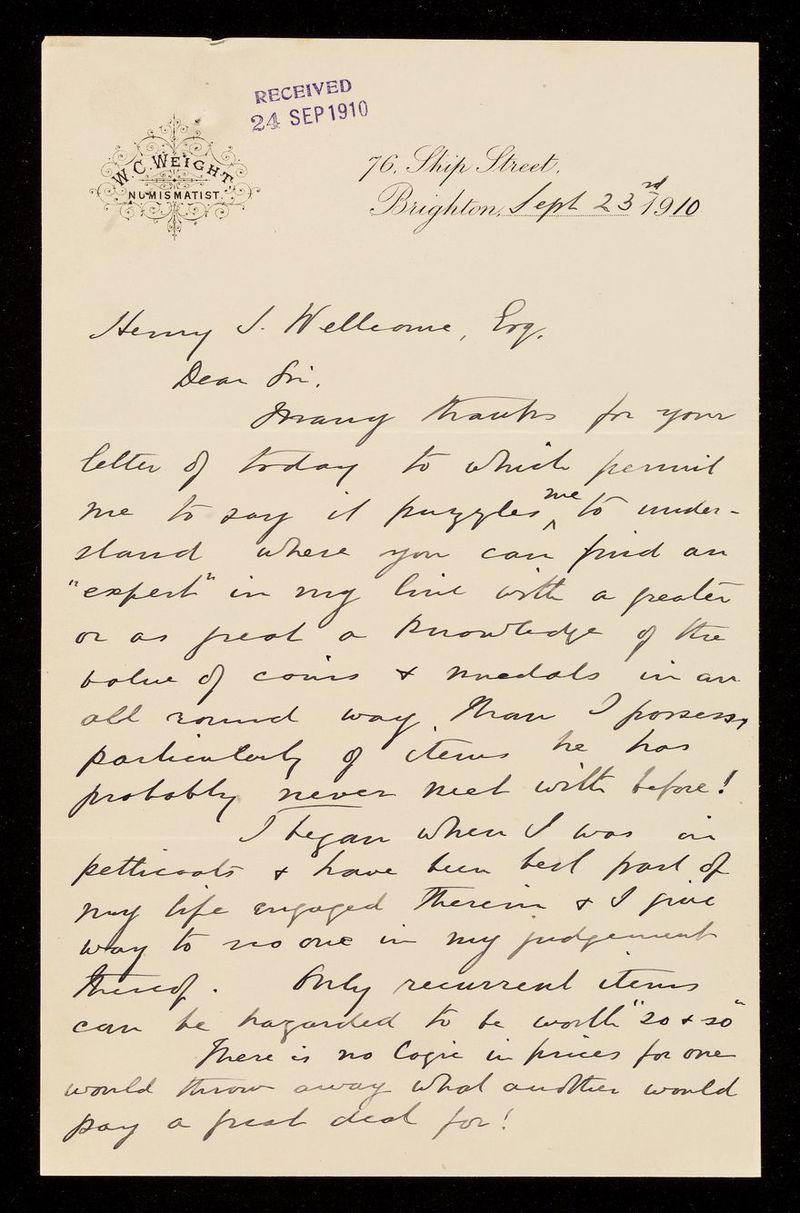 RECEIVED
24 SEP 1910
W. C. WEIGHT,
NUMISMATIST.
76, Ship Street,
Brighton, Sept 23rd 1910
Henry S. Wellcome, Esq.
Dear Sir.
Many thanks for your
letter of today to which permit
me to say it puzzles me to under-
stand where you can find an
"expert" in my line with a greater
or as great a knowledge of the
value of coins & medals in an
all round way, than I possess,
particularly of items he has
probably never met with before!
I began when I was in
petticoats & have been best part of
my life engaged therein & I give
way to no one in my judgement
thereof. Only recurrent items
can be hazarded to be worth "so & so"
There is no logic in prices for one
would throw away what another would
pay a great deal for!